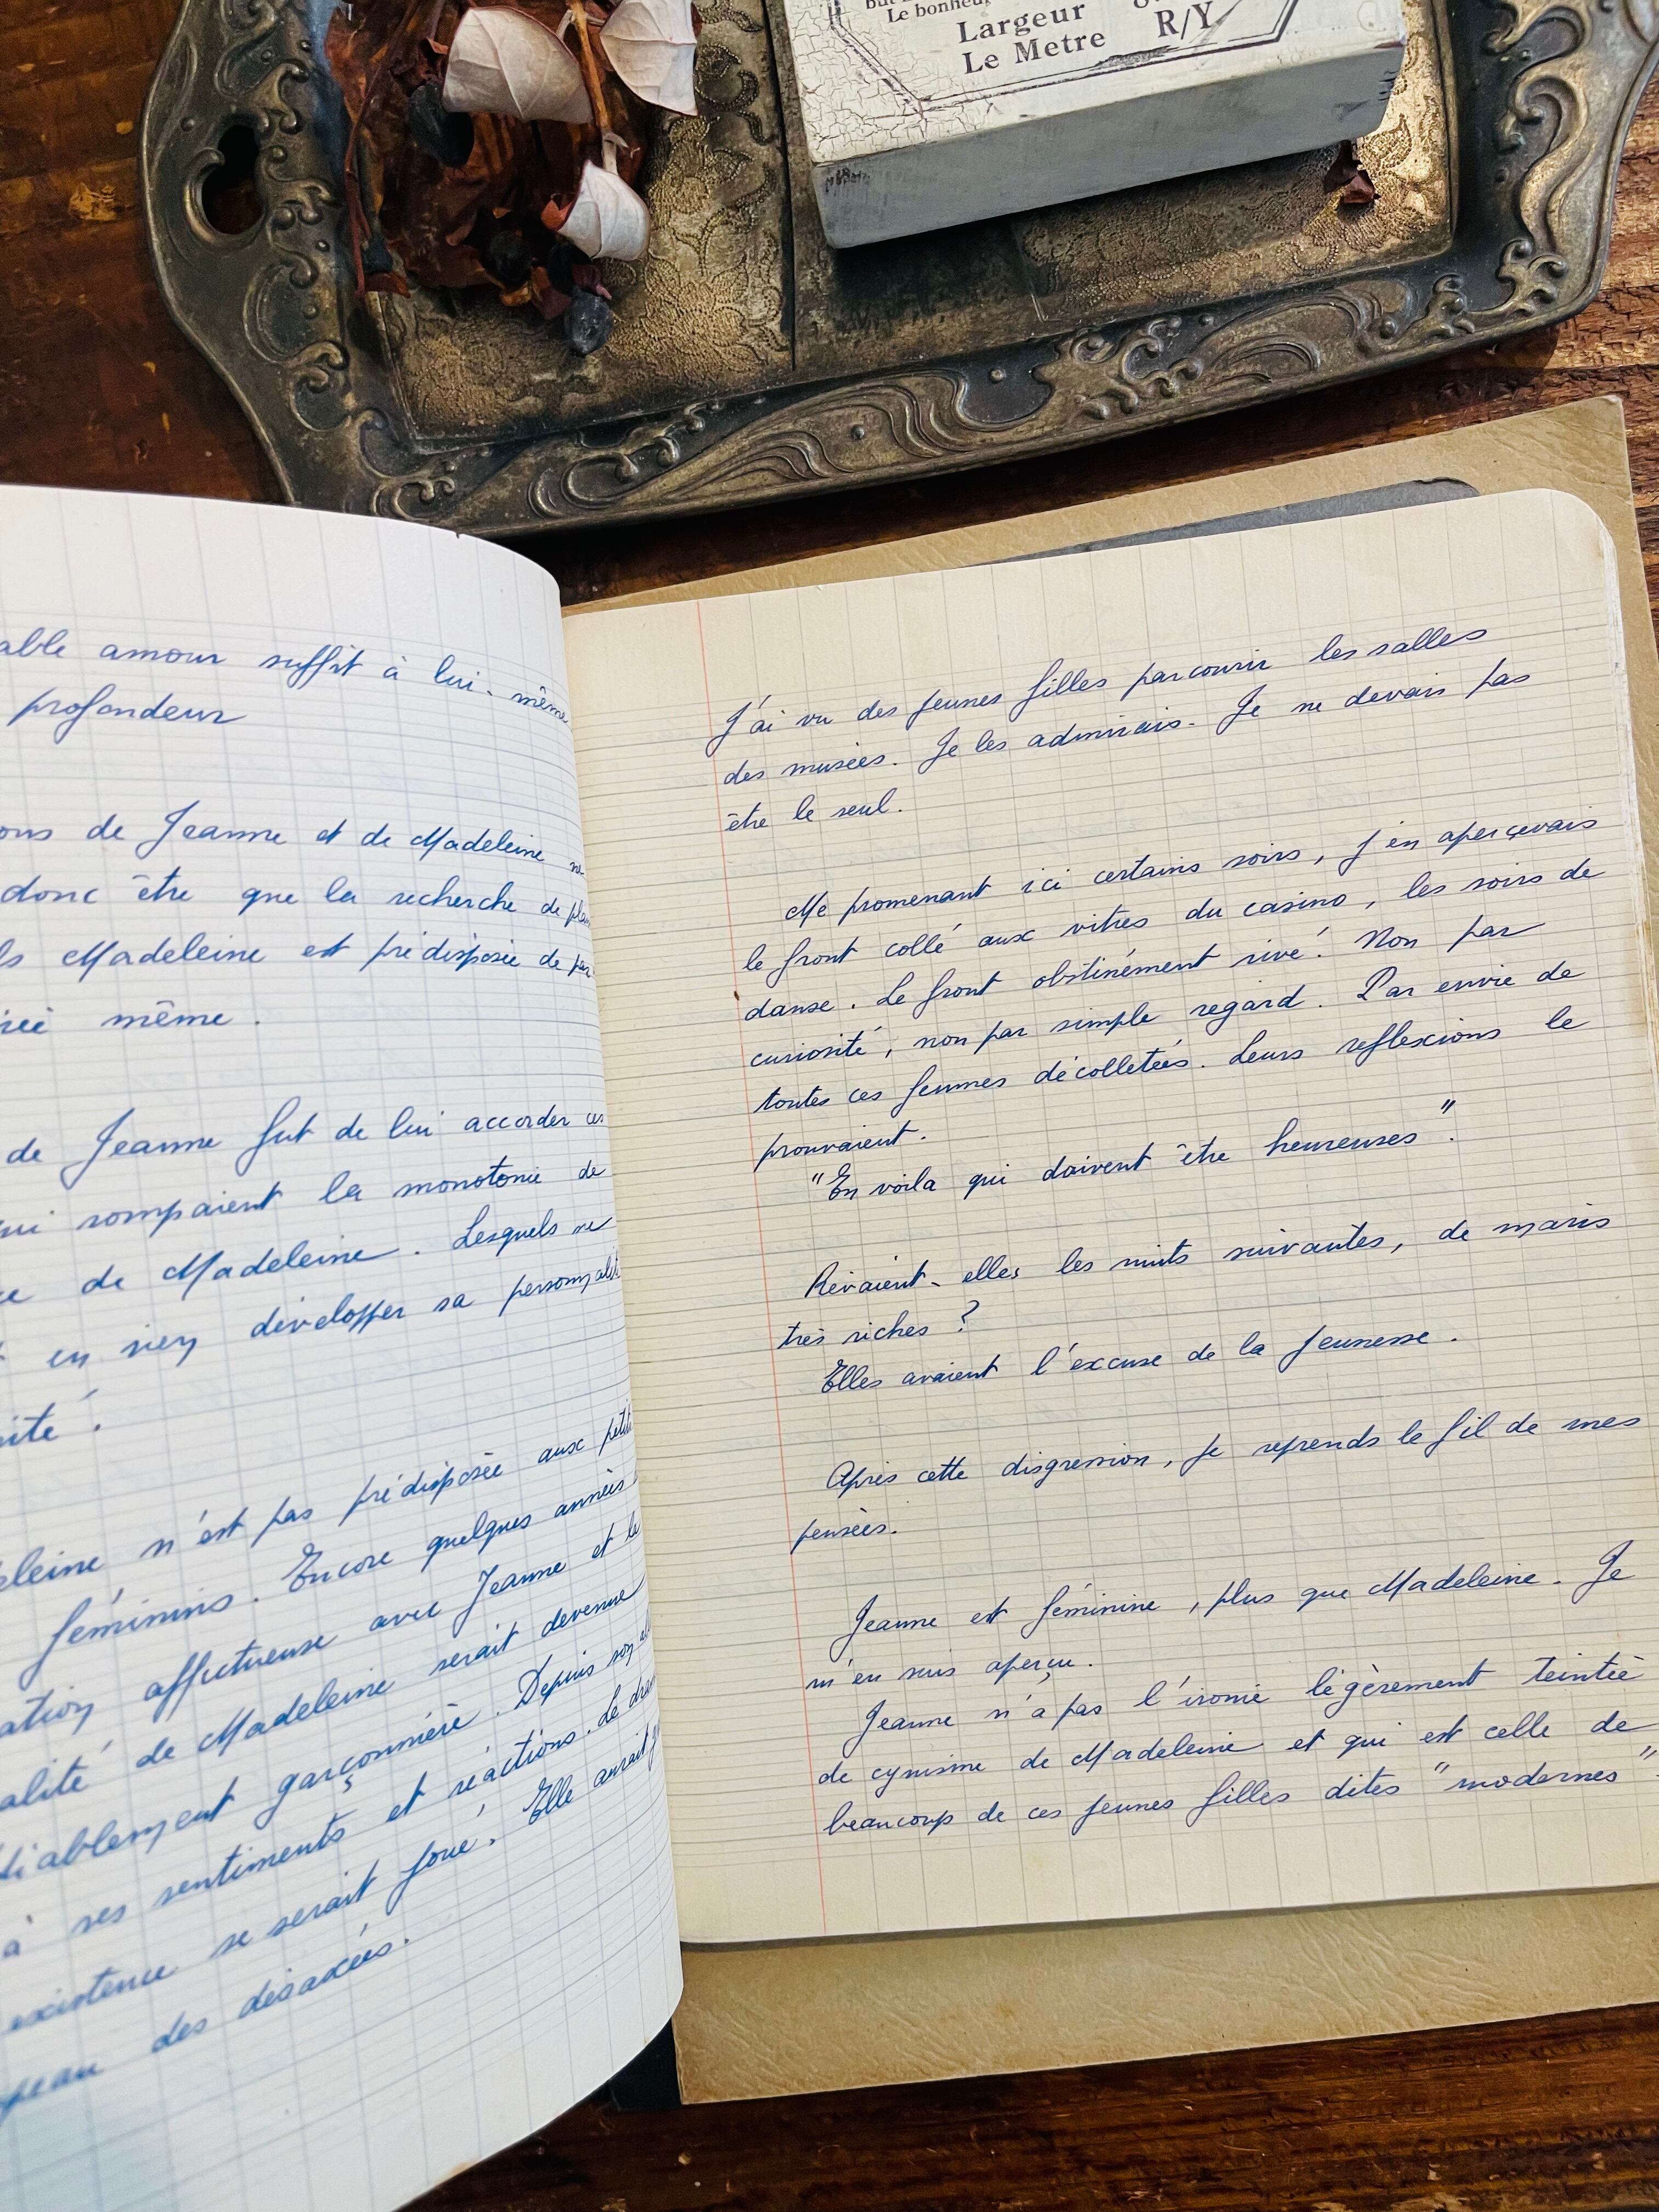 Le bonheur
Largeur
Le Metre R/Y
able amour suffit à lui-même
profondeur
ons de Jeanne et de Madeleine ne
donc être que la recherche de
Madeleine est prédisposée de par
même.
de Jeanne fut de lui accorder ces
ui rompaient la monotonie de
ce de Madeleine. Lesquels ne
en rien développer sa personnalité
sité.
eleine n'est pas prédisposée aux petits
féminins. Encore quelques années
ation affectueuse avec Jeanne et la
alité de Madeleine serait devenue
diablement garçonnière. Depuis son
à ses sentiments et réactions. Le dram
existence se serait joué. Elle aurait
peau des désaxées.
J'ai vu des jeunes filles parcourir les salles
des musées. Je les admirais. Je ne devais pas
être le seul.
Me promenant ici certains soirs, j'en aperçevais
le front collé aux vitres du casino, les soirs de
danse. Le front obstinément rivé! Non par
curiosité, non par simple regard. Par envie de
toutes ces femmes décolletées. Leurs reflexions le
prouvaient.
"En voila qui doivent être heureuses".
Rêvaient-elles les nuits suivantes, de maris
très riches ?
Elles avaient l'excuse de la jeunesse.
Après cette disgression, je reprends le fil de mes
pensées.
Jeanne est féminine, plus que Madeleine. Je
m'en suis aperçu.
Jeanne n'a pas l'ironie légèrement teintée
de cynisme de Madeleine et qui est celle de
beaucoup de ces jeunes filles dites "modernes".